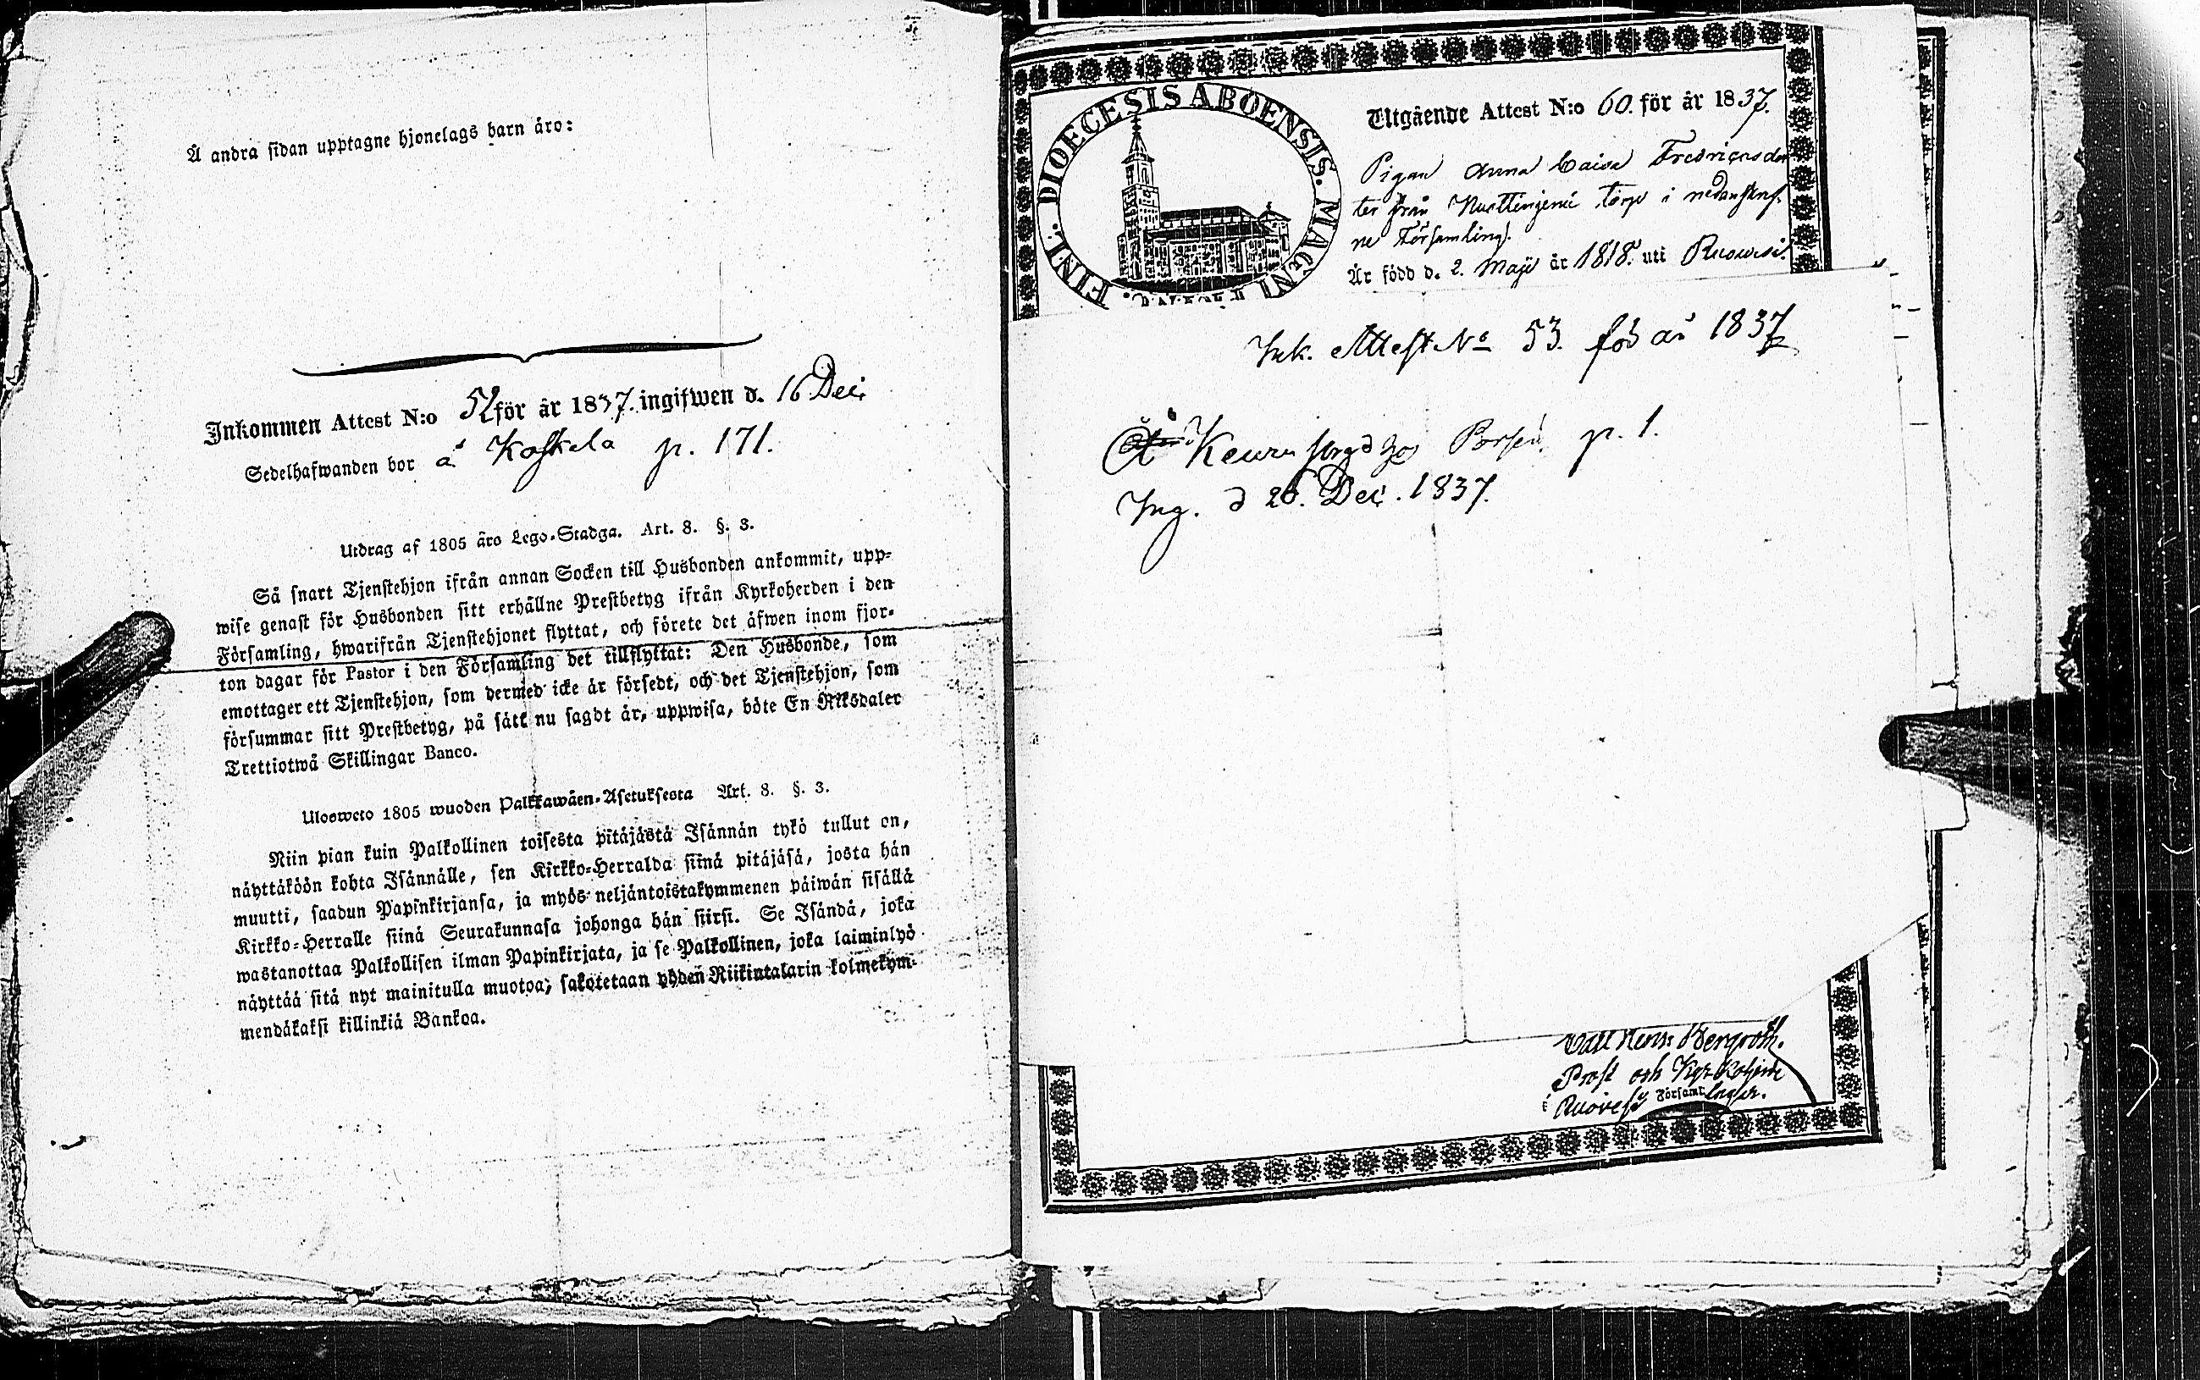 Å andra sidan upptagne hjonelags barn äro:
Inkommen Attest N:o 52 för år 1837. ingifwen d. 16 Dec:
Sedelhafwanden bor å Koskela p. 171.
Utdrag af 1805 års Lego-Stadga. Art. 8. §. 3.
Så snart Tjenstehjon ifrån annan Socken till Husbonden ankommit, upp-
wise genast för Husbonden sitt erhållne Prestbetyg ifrån Kyrkoherden i den
Församling, hwarifrån Tjenstehjonet flyttat, och förete det äfwen inom fjor-
ton dagar för Pastor i den Församling det tillflyttat: Den Husbonde, som
emottager ett Tjenstehjon, som dermed icke är försedt, och det Tjenstehjon, som
försummar sitt Prestbetyg, på sätt nu sagdt är, uppwisa, böte En Riksdaler
Trettiotwå Skillingar Banco.
Ulosweto 1805 wuoden Palkkawäen-Asetuksesta Art. 8. §. 3.
Niin pian kuin Palkollinen toisesta pitäjästä Isännän tykö tullut on,
näyttäköön kohta Isännälle, sen Kirkko-Herralda siinä pitäjäsä, josta hän
muutti, saadun Papinkirjansa, ja myös neljäntoistakymmenen päiwän sisällä
Kirkko-Herralle siinä Seurakunnasa johonga hän siirsi. Se Isändä, joka
wastanottaa Palkollisen ilman Papinkirjata, ja se Palkollinen, joka laiminlyö
näyttää sitä nyt mainitulla muotoa, sakotetaan yhden Riikintalarin kolmekym-
mendäkaksi killinkiä Bankoa.
FINL. DIOECESIS ABOENSIS. MAGNI
Utgående Attest N:o 60. för år 1837.
Pigan Anna Caisa Fredricsdot
ter från torp i nedanskrif
ne Församling.
Är född d. 2. Maji år 1818. uti Ruowesi.
Ink. Attest No 53. för år 1837
Å Keuru p. 1.
Ing. d 26. Dec. 1837.
Carl Henr: Bergroth.
Prost och
i Ruovesi Församlingar.